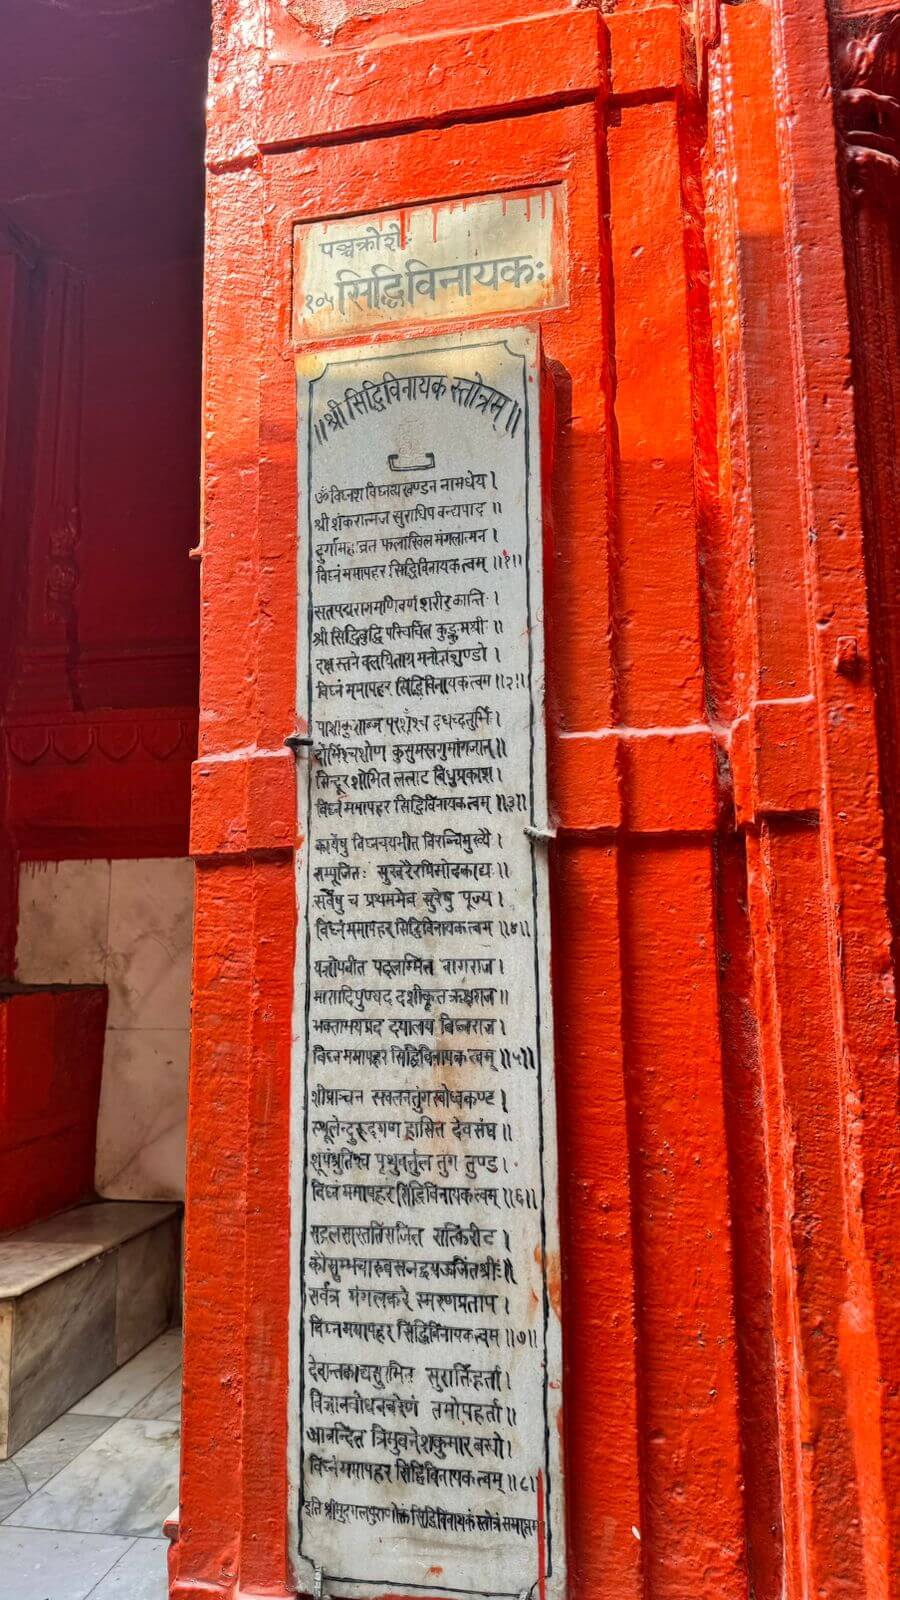 पञ्चक्रोशेः
१०५ सिद्धिविनायकः
॥ श्री सिद्धिविनायक स्तोत्रम् ॥
ॐ विघ्नेश विघ्नचयखण्डन नामधेय ।
श्री शंकरात्मज सुराधिप वन्द्यपाद ॥
दुर्गामहाव्रत फलाखिल मंगलात्मन ।
विघ्नं ममापहर सिद्धिविनायक त्वम् ॥१॥
सतपद्मरागमणिवर्ण शरीर कान्तिः ।
श्री सिद्धिबुद्धि परिचर्चित कुङ्कुमश्री ॥
दक्ष स्तने वलयिताय मनोज्ञशुण्डो ।
विघ्नं ममापहर सिद्धिविनायक त्वम ॥२॥
पाशांकुशाब्ज परशूँश्च दधच्चतुर्भि ।
दोर्भिश्चशोण कुसुमस्त्रगुमांगजान् ॥
सिन्दूर शोभित ललाट विधुप्रकाश ।
विघ्नं ममापहर सिद्धिविनायक त्वम् ॥३॥
कार्येषु विघ्नचयभीत विरञ्चिमुख्यै ।
सम्पूजितः सुखरैरपिमोदकाद्यः ॥
सर्वेषु च प्रथममेव सुरेषु पूज्य ।
विघ्नं ममापहर सिद्धिविनायक त्वम् ॥४॥
यज्ञोपवीत पदलम्भित नागराज ।
मासादिपुण्यद दशीकृत ऋक्षराज ॥
भक्ताभयप्रद दयालय विघ्नराज ।
विघ्न ममापहर सिद्धिविनायक त्वम् ॥५॥
देवसंघ ॥
पृथुवर्तुल तुंग तुण्ड ।
विघ्न ममापहर सिद्धिविनायक त्वम् ॥६॥
सत्किरीट ।
सर्वत्र मंगलकरे स्मरणप्रताप ।
विघ्न ममापहर सिद्धिविनायक त्वम् ॥७॥
देवान्तकाद्यसुरभित सुरार्तिहर्ता ।
विज्ञानबोधनवरेणं तमोपहर्ता ॥
आनन्दित त्रिभुवनेशकुमार बन्धो ।
विघ्नं ममापहर सिद्धिविनायक त्वम् ॥८॥
इति श्रीमुद्गलपुराणोक्तं सिद्धिविनायकं स्तोत्रं समाप्तम